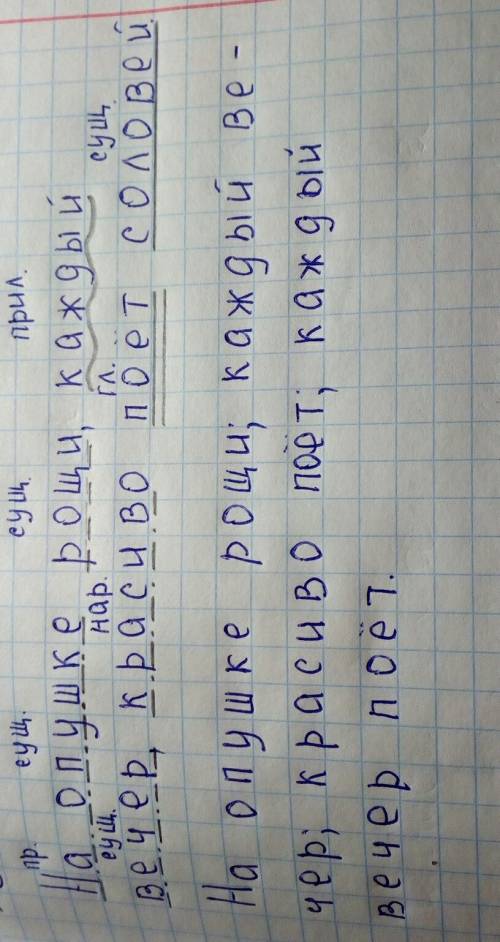 пр. сущ. сущ. прил.
На опушке рощи, каждый
сущ. нар. гл. сущ.
вечер, красиво поёт соловей.
На опушке рощи; каждый ве-
чер; красиво поёт; каждый
вечер поёт.